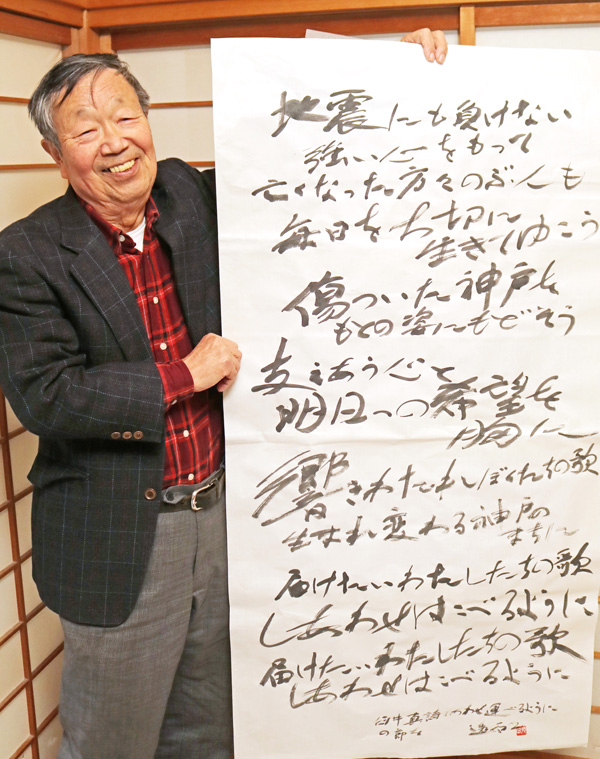 地震にも負けない
強い心をもって
亡くなった方々のぶんも
毎日を大切に
生きてゆこう
傷ついた神戸を
もとの姿にもどそう
支えあう心と
明日への希望を
胸に
響きわたれぼくたちの歌
生まれ変わる神戸の
まちに
届けたいわたしたちの歌
しあわせはこべるように
届けたいわたしたちの歌
しあわせはこべるように
しあわせ運べるように
の節を